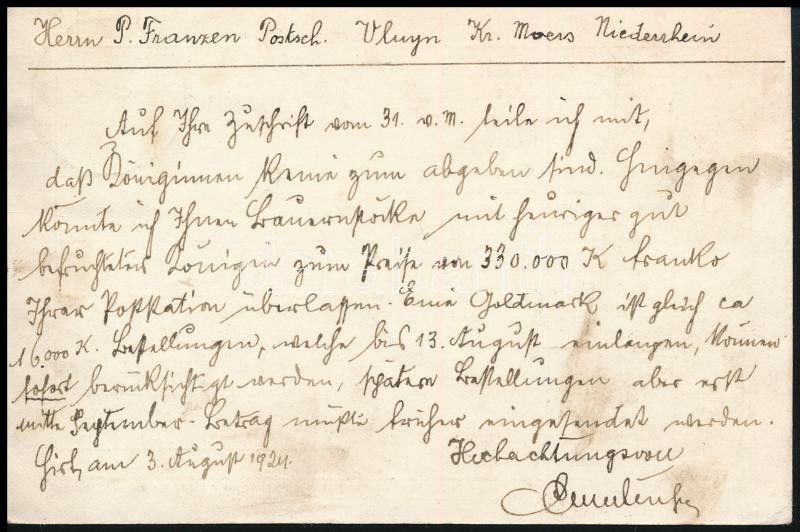 Herrn P. Franzen Postsch. Vluyn Kr. Moers Niederrhein
Auf Ihre Zuschrift vom 31. v. M. teile ich mit,
daß Königinnen keine zum abgeben sind. Hingegen
könnte ich Ihnen Bauernstöcke mit heuriger gut
befruchteter Königin zum Preise von 330.000 K franko
Ihrer Poststation überlassen. Eine Goldmark ist gleich ca
16.000 K. Bestellungen, welche bis 13. August einlangen, können
sofort berücksichtigt werden, spätere Bestellungen aber erst
mitte September. Betrag müßte früher eingesendet werden.
am 3. August 1924.
Hochachtungsvoll